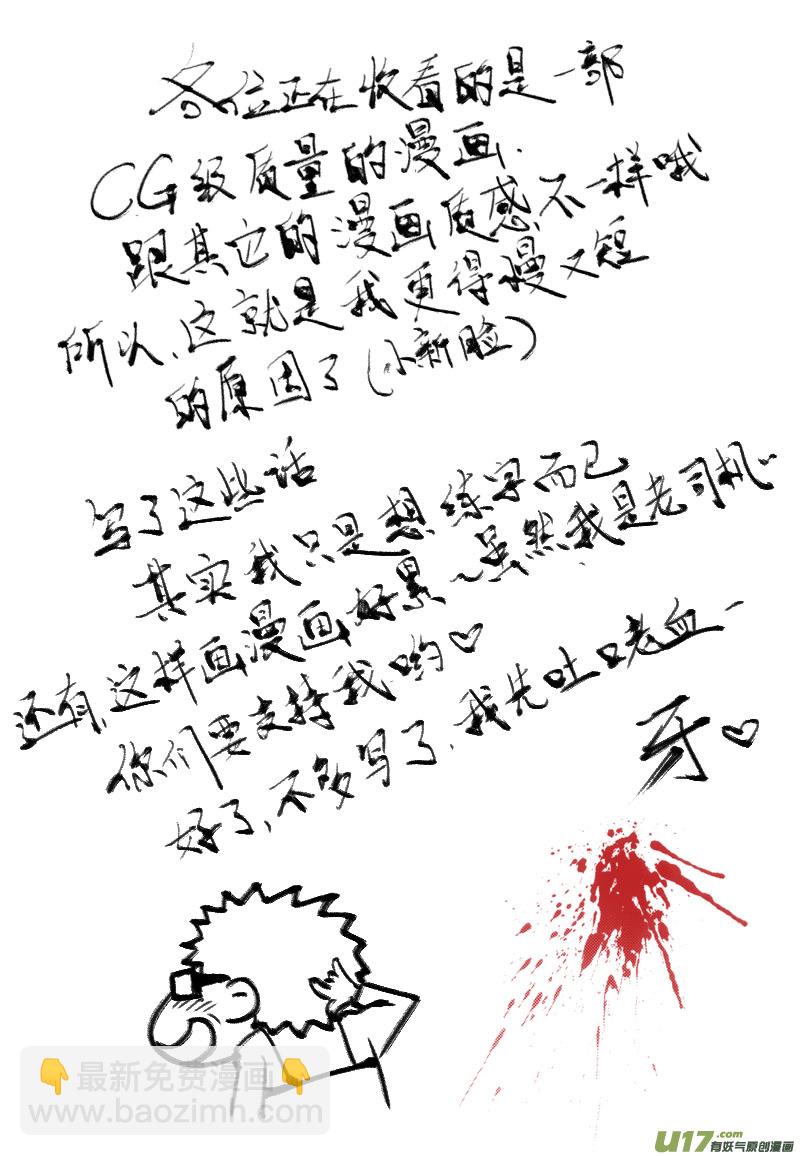 各位正在收看的是一部
CG级质量的漫画、
跟其它的漫画质感不一样哦
所以、这就是我更得慢又短
的原因了(小新脸)
写了这些话
其实我只是想练字而已
还有、这样画漫画好累~虽然我是老司机~
你们要支持我哟♡
好了、不多写了、我先吐口老血~
牙♡
最新免费漫画
www.baozimh.com
U17.com
有妖气原创漫画